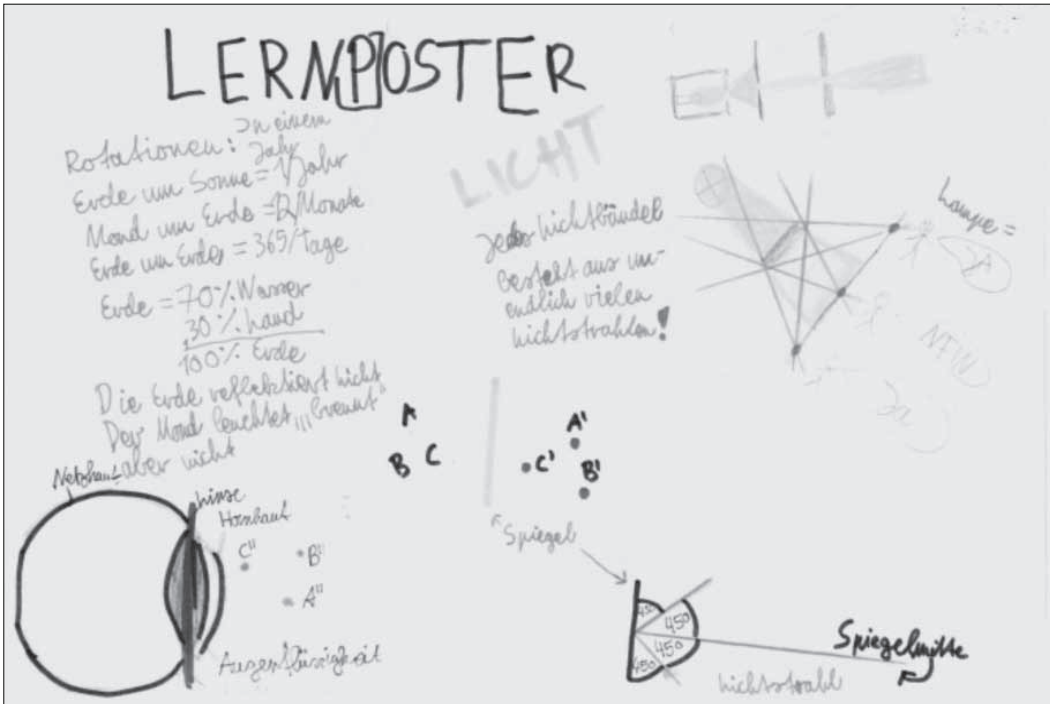 LERNPOSTER
Rotationen: In einem
Jahr
Erde um Sonne = 1/Jahr
Mond um Erde = 12/Monate
Erde um Erde = 365/Tage
Erde = 70% Wasser
30% Land
100% Erde
Die Erde reflektiert Licht
Der Mond leuchtet, "brennt"
aber nicht
LICHT
Jedes Lichtbündel
besteht aus un-
endlich vielen
Lichtstrahlen!
Lampe =
JA
NEIN
Ja
A
B C
A'
C'
B'
Spiegel
Netzhaut
Linse
Hornhaut
C''
B''
A''
Augenflüssigkeit
45°
45°
45°
45°
Spiegelmitte
Lichtstrahl